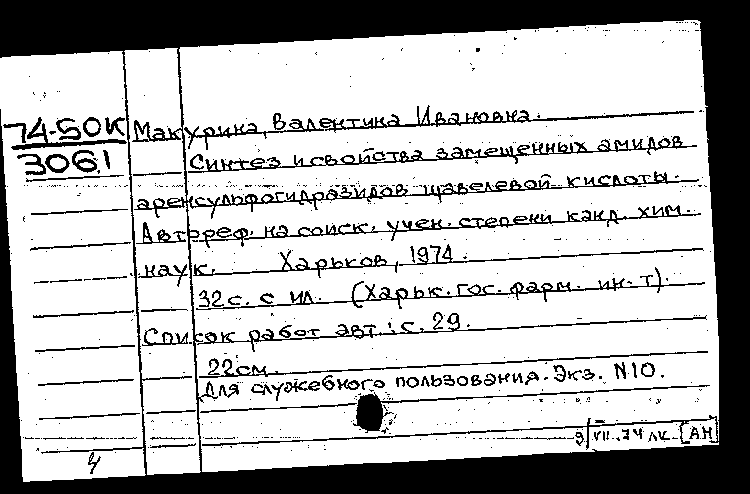 74-50К
3061
Макурина, Валентина Ивановна.
Синтез и свойства замещенных амидов
аренсульфогидразидов щавелевой кислоты.
Автореф. на соиск. учен. степени канд. хим.
наук. Харьков, 1974.
32 с. с ил. (Харьк. гос. фарм. ин-т).
Список работ авт.: с. 29.
22 см.
Для служебного пользования. Экз. N10.
9/VII.74 лк [АН]